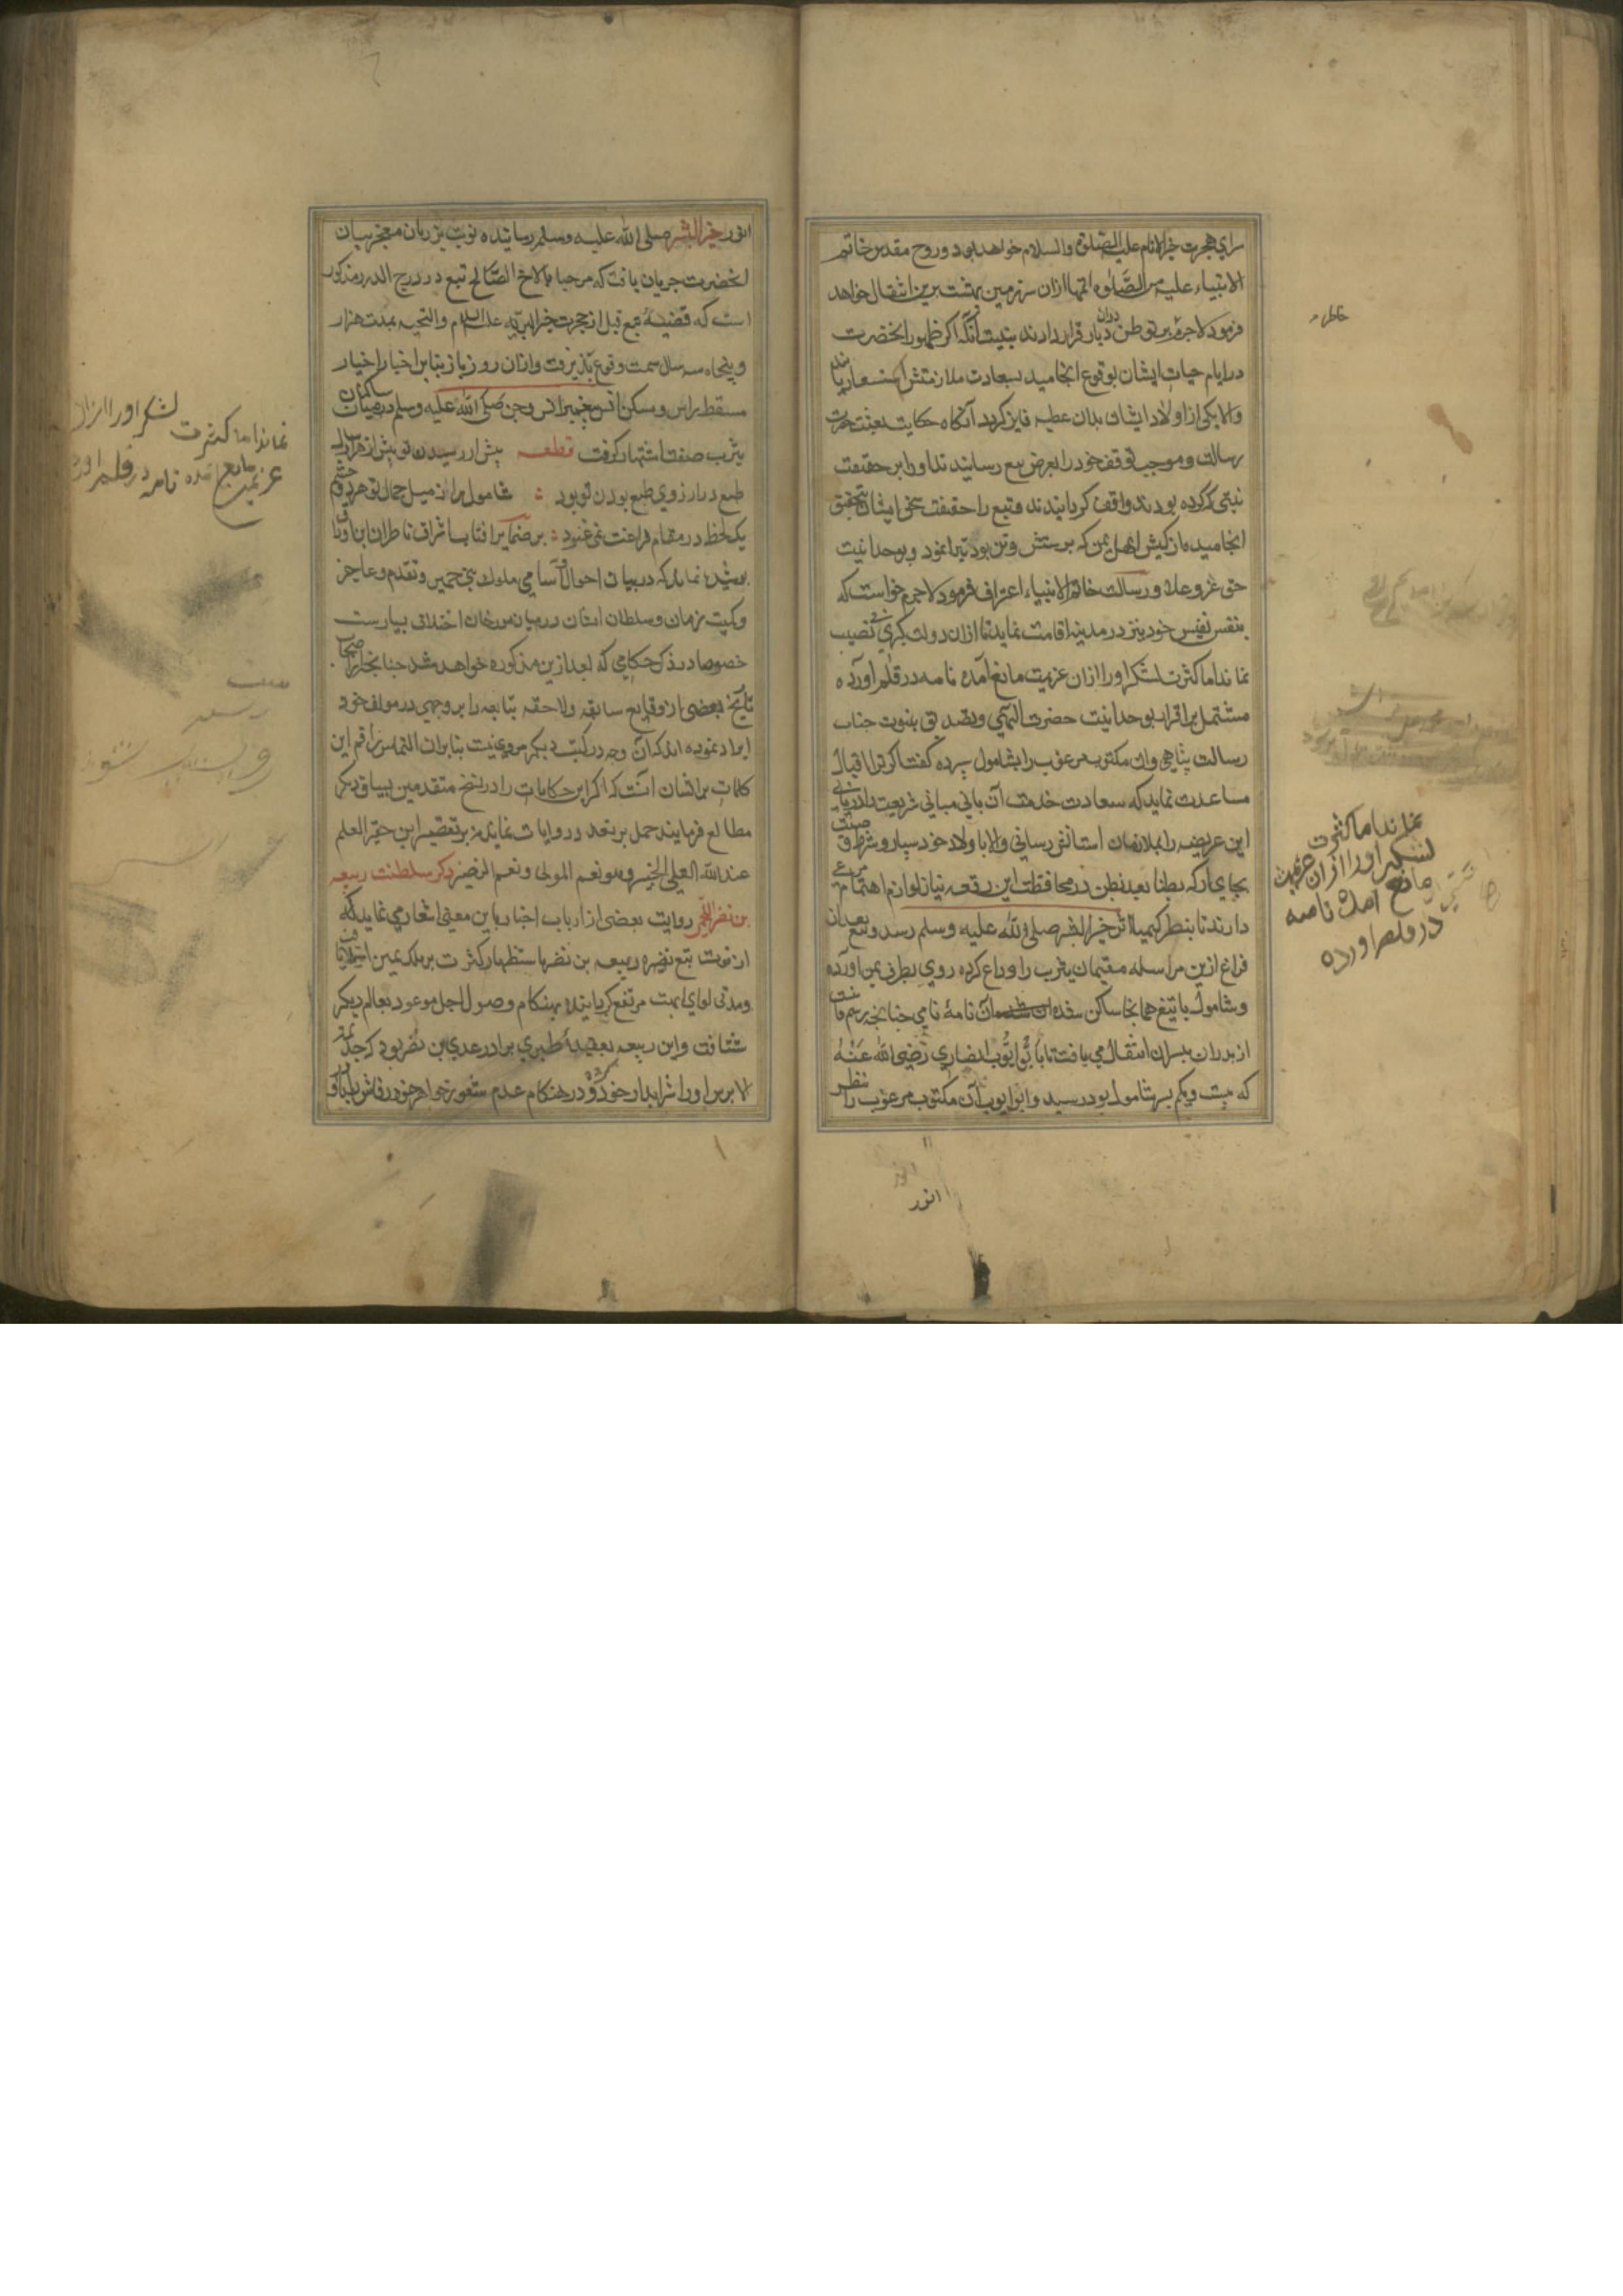 سرای هجرت خیر الانام علیه الصلوة والسلام خواهد بود و روح مقدس خاتم
الانبیاء علیه من الصلوة اتمها ازان سرزمین بهشت برین انتقال خواهد
فرمود لاجرم بر توطن دران دیار قرار دادند بنیت آنکه اکر ظهور انحضرت
در ایام حیات ایشان بوقوع انجامید بسعادت ملازمتش استسعاد یابند
والا یکی از اولاد ایشان بدان عطیه فایز کردد آنکاه حکایت بعثت حضرت
رسالت و موجب توقف خود را بعرض تبع رسانیدند و او را بر حقیقت
نیتی که کرده بودند واقف کردانیدند و تبع را حقیقت سخن ایشان بتحقیق
انجامیده از کیش اهل یمن که پرستش وثن بود تبرا نمود و بوحدانیت
حق عز و علا و رسالت خاتم الانبیاء اعتراف فرمود لاجرم خواست که
بنفس نفیس خود نیز در مدینه اقامت نماید تا ازان دولت کبری بی نصیب
نماند اما کثرت لشکر او را ازان عزیمت مانع آمده نامه در قلم آورده
مشتمل بر اقرار بوحدانیت حضرت الهی و تصدیق بنبوت جناب
رسالت پناهی وان مکتوب مرغوب را بشامول سپرده کفت اکر ترا اقبال
مساعدت نماید که سعادت خدمت آن بانی مبانی شریعت را دریابی
این عریضه را بملازمان آستانش رسانی والا باولاد خود سپار و شرط وصیت
بجای آر که بطنا بعد بطن در محافظت این رقعه نیاز لوازم اهتمام مرعی
دارند تا بنظر کیمیا اثر خیر البشر صلی الله علیه وسلم رسد و تبع بعد ازان
فراغ ازین مراسله مقیمان یثرب را وداع کرده روی بطرف یمن آورده
و شامول با تبع همانجا ساکن شده آن نامهٔ نامی چنانچه رسم
از پدران بپسران انتقال می یافت تا بابو ایوب انصاری رضی الله عنه
که بیست ویکم پسر شامول بود رسید و ابو ایوب آن مکتوب مرغوب را بنظر
انور
نماند اما کثرت
لشکر او را ازان عزیمت
مانع آمده نامه
در قلم اورده
انور خیر البشر صلی الله علیه وسلم رسانیده نوبت بر زبان معجز بیان
انحضرت جریان یافت که مرحبا بالاخ الصالح تبع در درج الدرر مذکور
است که قضیهٔ تبع قبل از هجرت خیر البریه علیه السلام والتحیه بمدت هزار
و پنجاه سه سال سمت وقوع پذیرفت وازان روز باز بنابر اخبار اخیار
مسقط راس و مسکن انس پیغمبر انس وجن صلی الله علیه وسلم در میان ساکنان
یثرب صفت اشتهار کرفت قطعه پیش از رسیدن تو پیش از هزار سال
طبع در ارزوی طبع بودن تو بود شامول را از میل جمال تو هر دو چشم
یک لحظه در مقام فراغت نمی غنود بر ضمایر افتاب اشراف ناظران این اوراق
پوشیده نماند که در بیان احوال و آسامی ملوک بنی حمیر و تقدم و تاخر
وکمیت زمان و سلطان ایشان در میان مورخان اختلاف بسیارست
خصوصا در ذکر حکامی که بعد ازین مذکوره خواهد شد چنانچه اصحاب
تاریخ بعضی از وقایع سابقه و لاحقه تبابعه را بر وجهی در مولف خود
ایراد نموده اند که آن وجه در کتب دیکر مروی نیست بنابران التماس راقم این
کلمات از ایشان آنست که اکر این حکایات را در نسخ متقدمین بسیاق دیکر
مطالعه فرمایند حمل بر تعدد روایات نمایند نه بر تقصیر این حقیر العلم
عند الله العلی الخبیر وهو نعم المولی ونعم النصیر ذکر سلطنت ربیعه
بن نصر اللخمی روایت بعضی از ارباب اخبار باین معنی اشعار می نماید که
از فوت تبع نصیره ربیعه بن نصر باستظهار کثرت بر ملک یمن استیلا یافت
ومدتی لوای ابهت مرتفع کردانیده بهنکام وصول اجل موعود بعالم دیکر
شتافت واین ربیعه بعقیدهٔ طبری برادر عدی بن نصر بود که جذیمة
الابرش او را شرابدار خود کرده و در هنکام عدم شعور خواهر خود رقاش را باو
نماند اما کثرت لشکر او را ازان
عزیمت مانع آمده نامه در قلم اورد